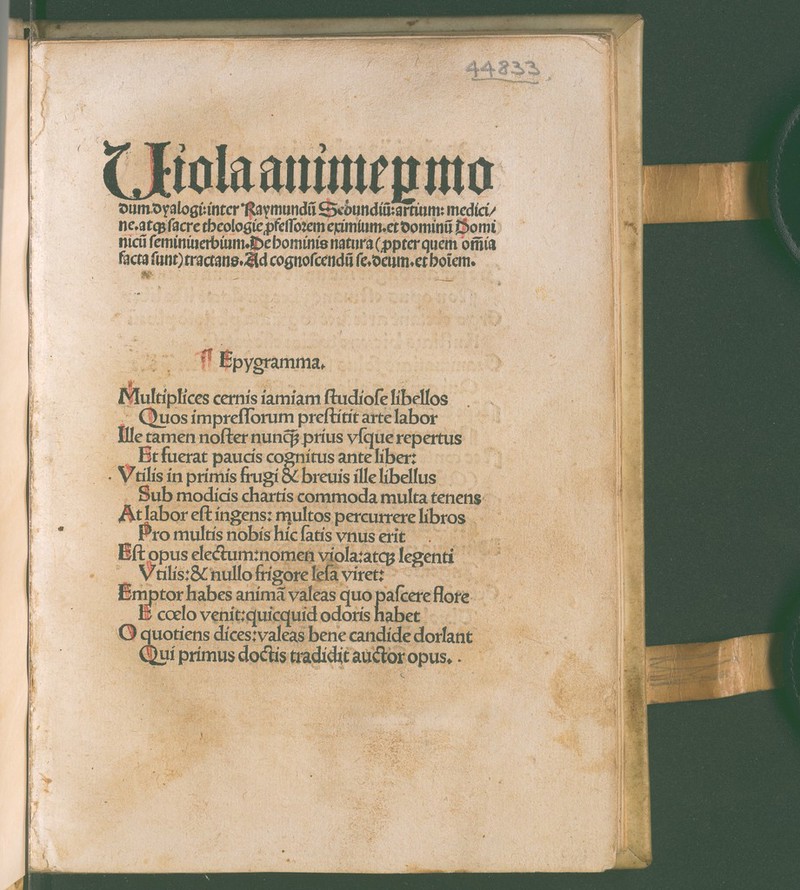 44833
Uiola anime ꝑ mo
dum.dyalogi:inter Raymundū Sebundiū:artium: medici⸗
ne.atqꝫ ſacre theologie ꝓfeſſorem eximium.et dominū Domi
nicū ſeminiuerbium.De hominis natura (ꝓpter quem om̄ia
facta ſunt) tractans.Ad cognoſcendū ſe.deum.et hoīem.
¶ Epygramma.
Multiplices cernis iamiam ſtudioſe libellos
Quos impreſſorum preſtitit arte labor
Ille tamen noſter nunqꝫ̄ prius vſque repertus
Et fuerat paucis cognitus ante liber:
Vtilis in primis frugi & breuis ille libellus
Sub modicis chartis commoda multa tenens
At labor eſt ingens: multos percurrere libros
Pro multis nobis hic ſatis vnus erit
Eſt opus electum:nomen viola:atqꝫ legenti
Vtilis:& nullo frigore leſa viret:
Emptor habes animā valeas quo paſcere flore
E cœlo venit:quicquid odoris habet
O quotiens dices:valeas bene candide dorlant
Qui primus doctis tradidit auctor opus.